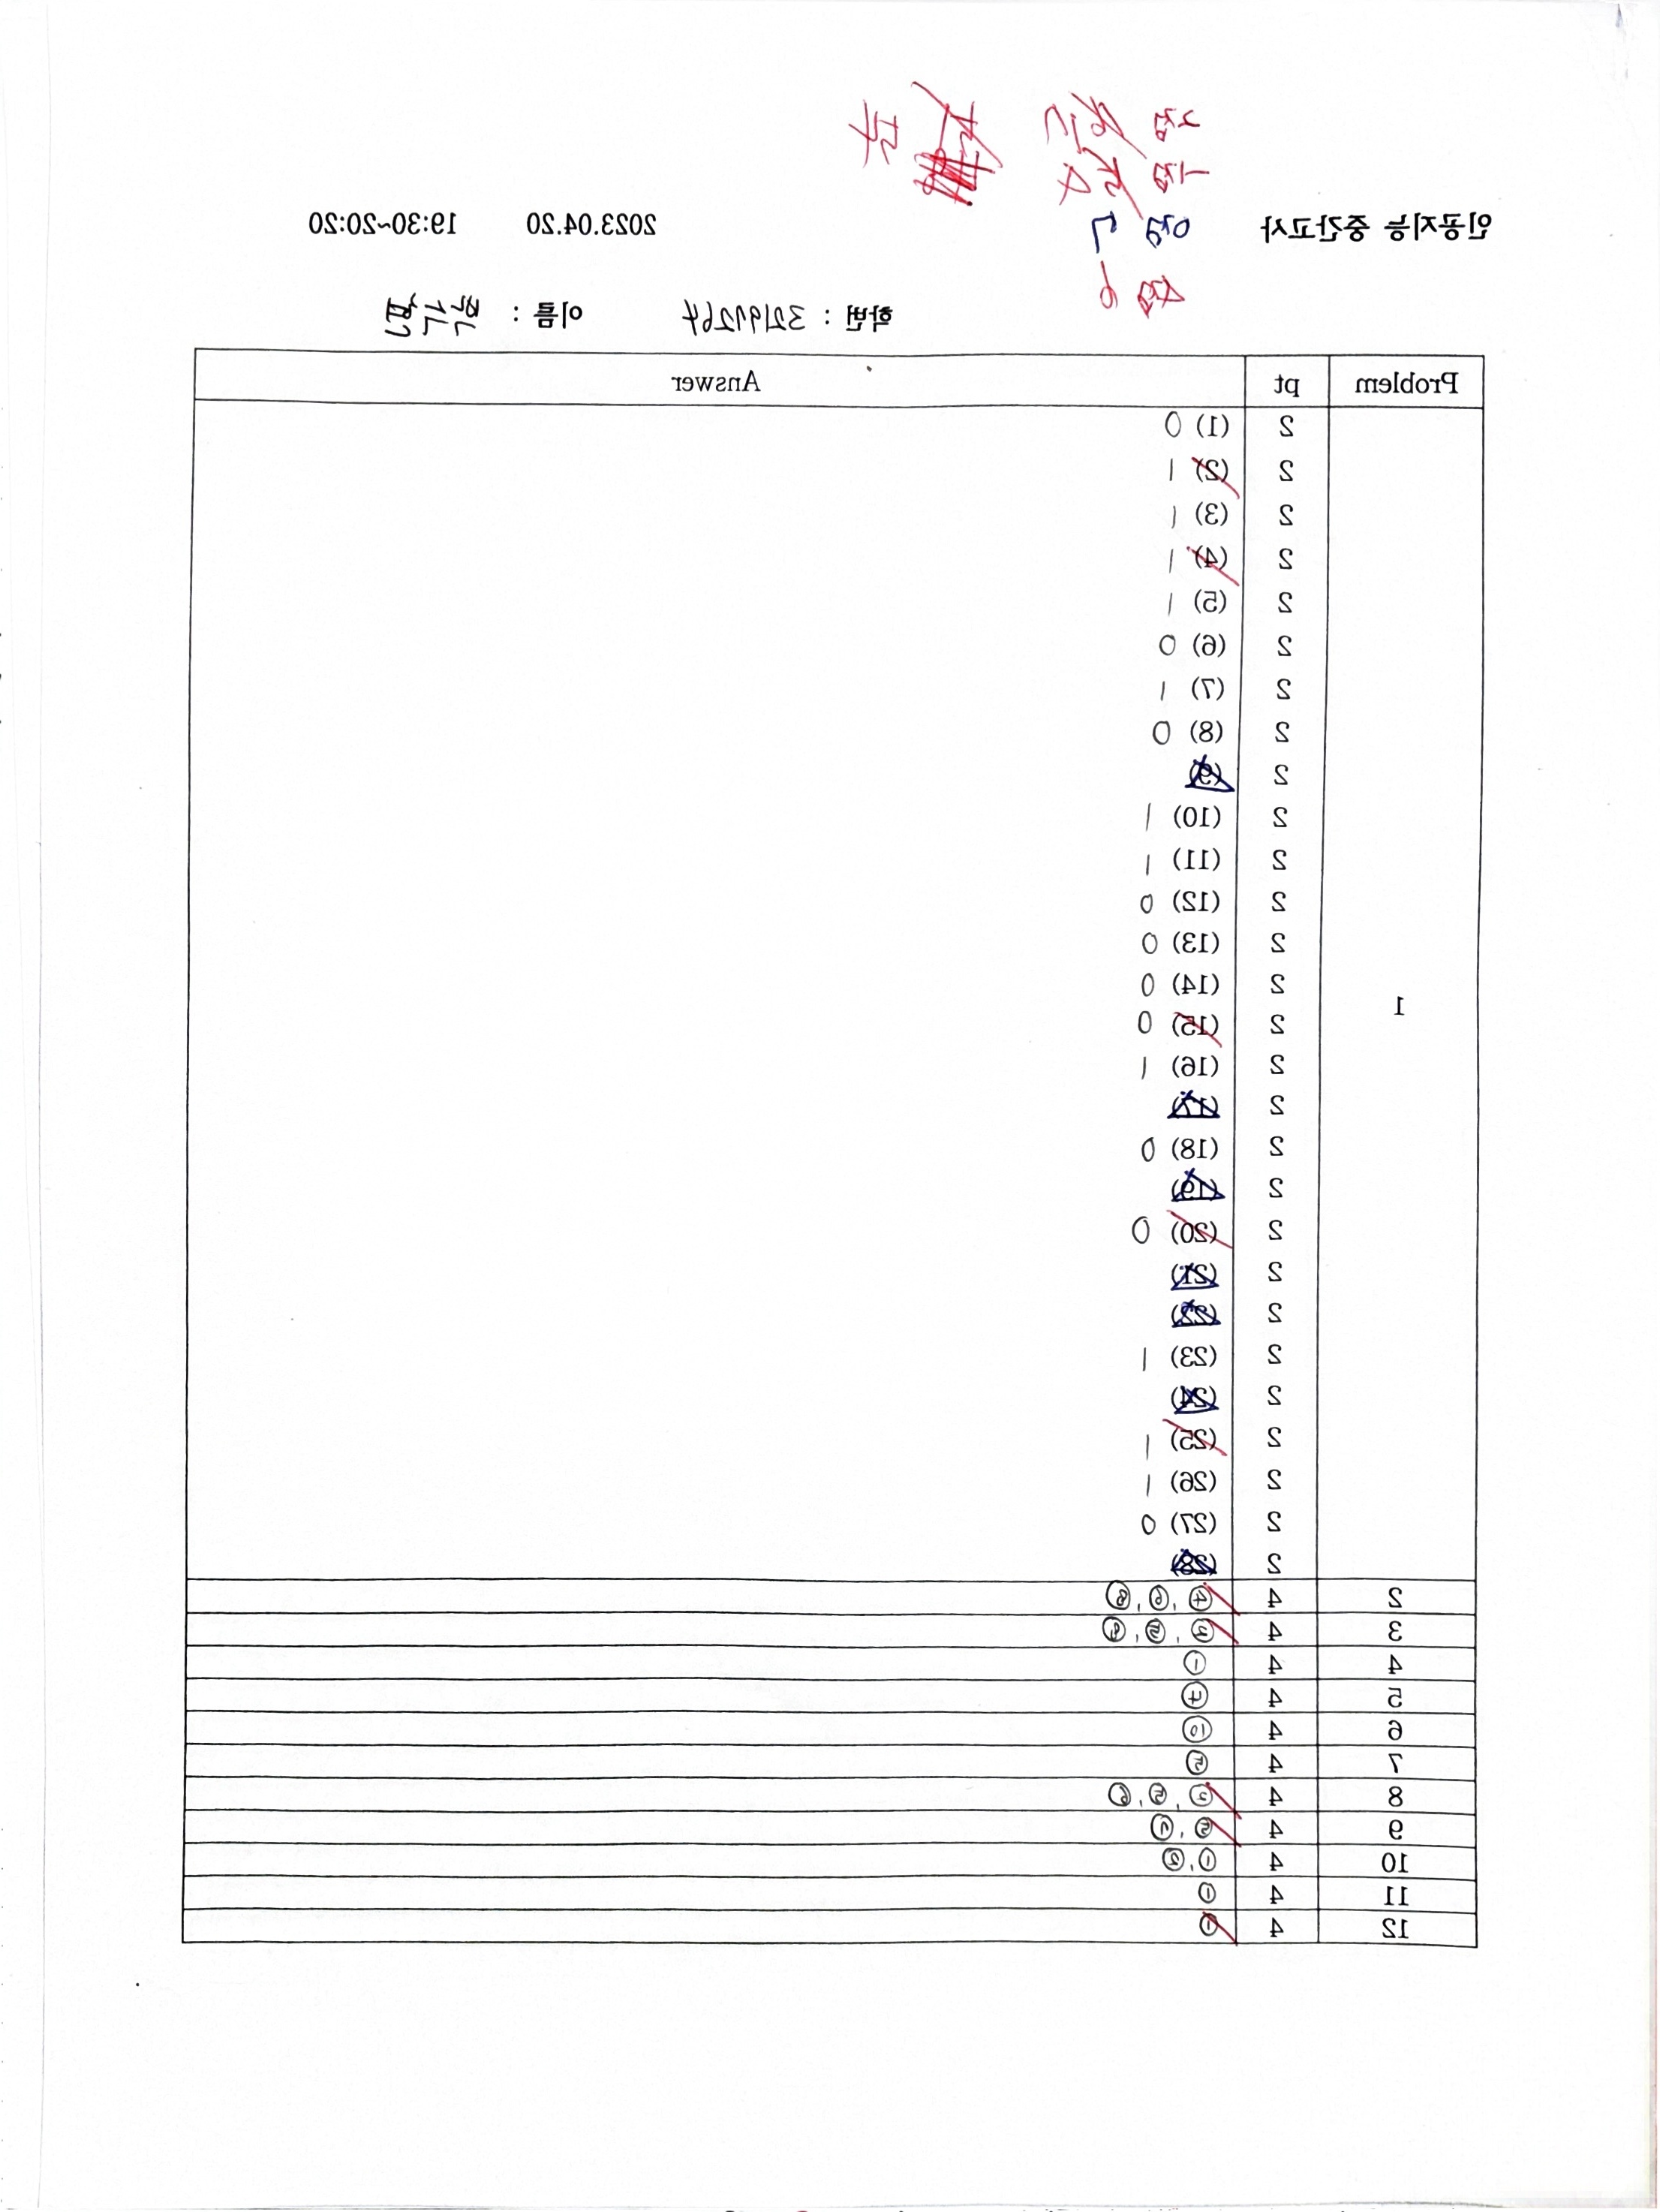 2점
1점
인공지능 중간고사 2023.04.20 19:30~20:20
학번 : 32197264 이름 :
Problem pt Answer
1
2 (1) 0
2 (2) 1
2 (3) 1
2 (4) 1
2 (5) 1
2 (6) 0
2 (7) 1
2 (8) 0
2 (9)
2 (10) 1
2 (11) 1
2 (12) 0
2 (13) 0
2 (14) 0
2 (15) 0
2 (16) 1
2 (17)
2 (18) 0
2 (19)
2 (20) 0
2 (21)
2 (22)
2 (23) 1
2 (24)
2 (25) 1
2 (26) 1
2 (27) 0
2 (28)
2 4 ④, ⑥, ⑧
3 4 ③, ⑤, ⑨
4 4 ①
5 4 ④
6 4 ⑩
7 4 ⑤
8 4 ③, ⑤, ⑥
9 4 ⑤, ⑦
10 4 ①, ②
11 4 ①
12 4 ①